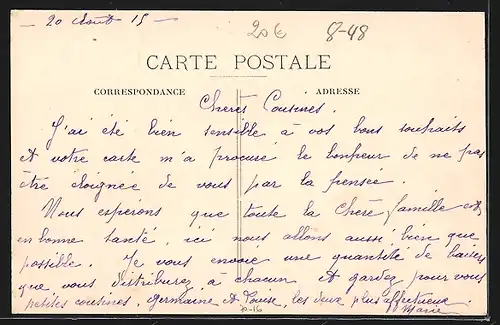 - 20 Aout 15 -
20€ 8-48
CARTE POSTALE
CORRESPONDANCE
ADRESSE
Cheres Cousines.
J'ai été bien sensible à vos bons souhaits
et votre carte m'a procuré le bonheur de ne pas
être éloignée de vous par la pensée.
Nous esperons que toute la chère famille est
en bonne santé, ici nous allons aussi bien que
possible. Je vous envoie une quantité de baisers
que vous distriburez à chacun et gardez pour vous
petites cousines, Germaine et Louise, les deux plus affectueux.
Marie